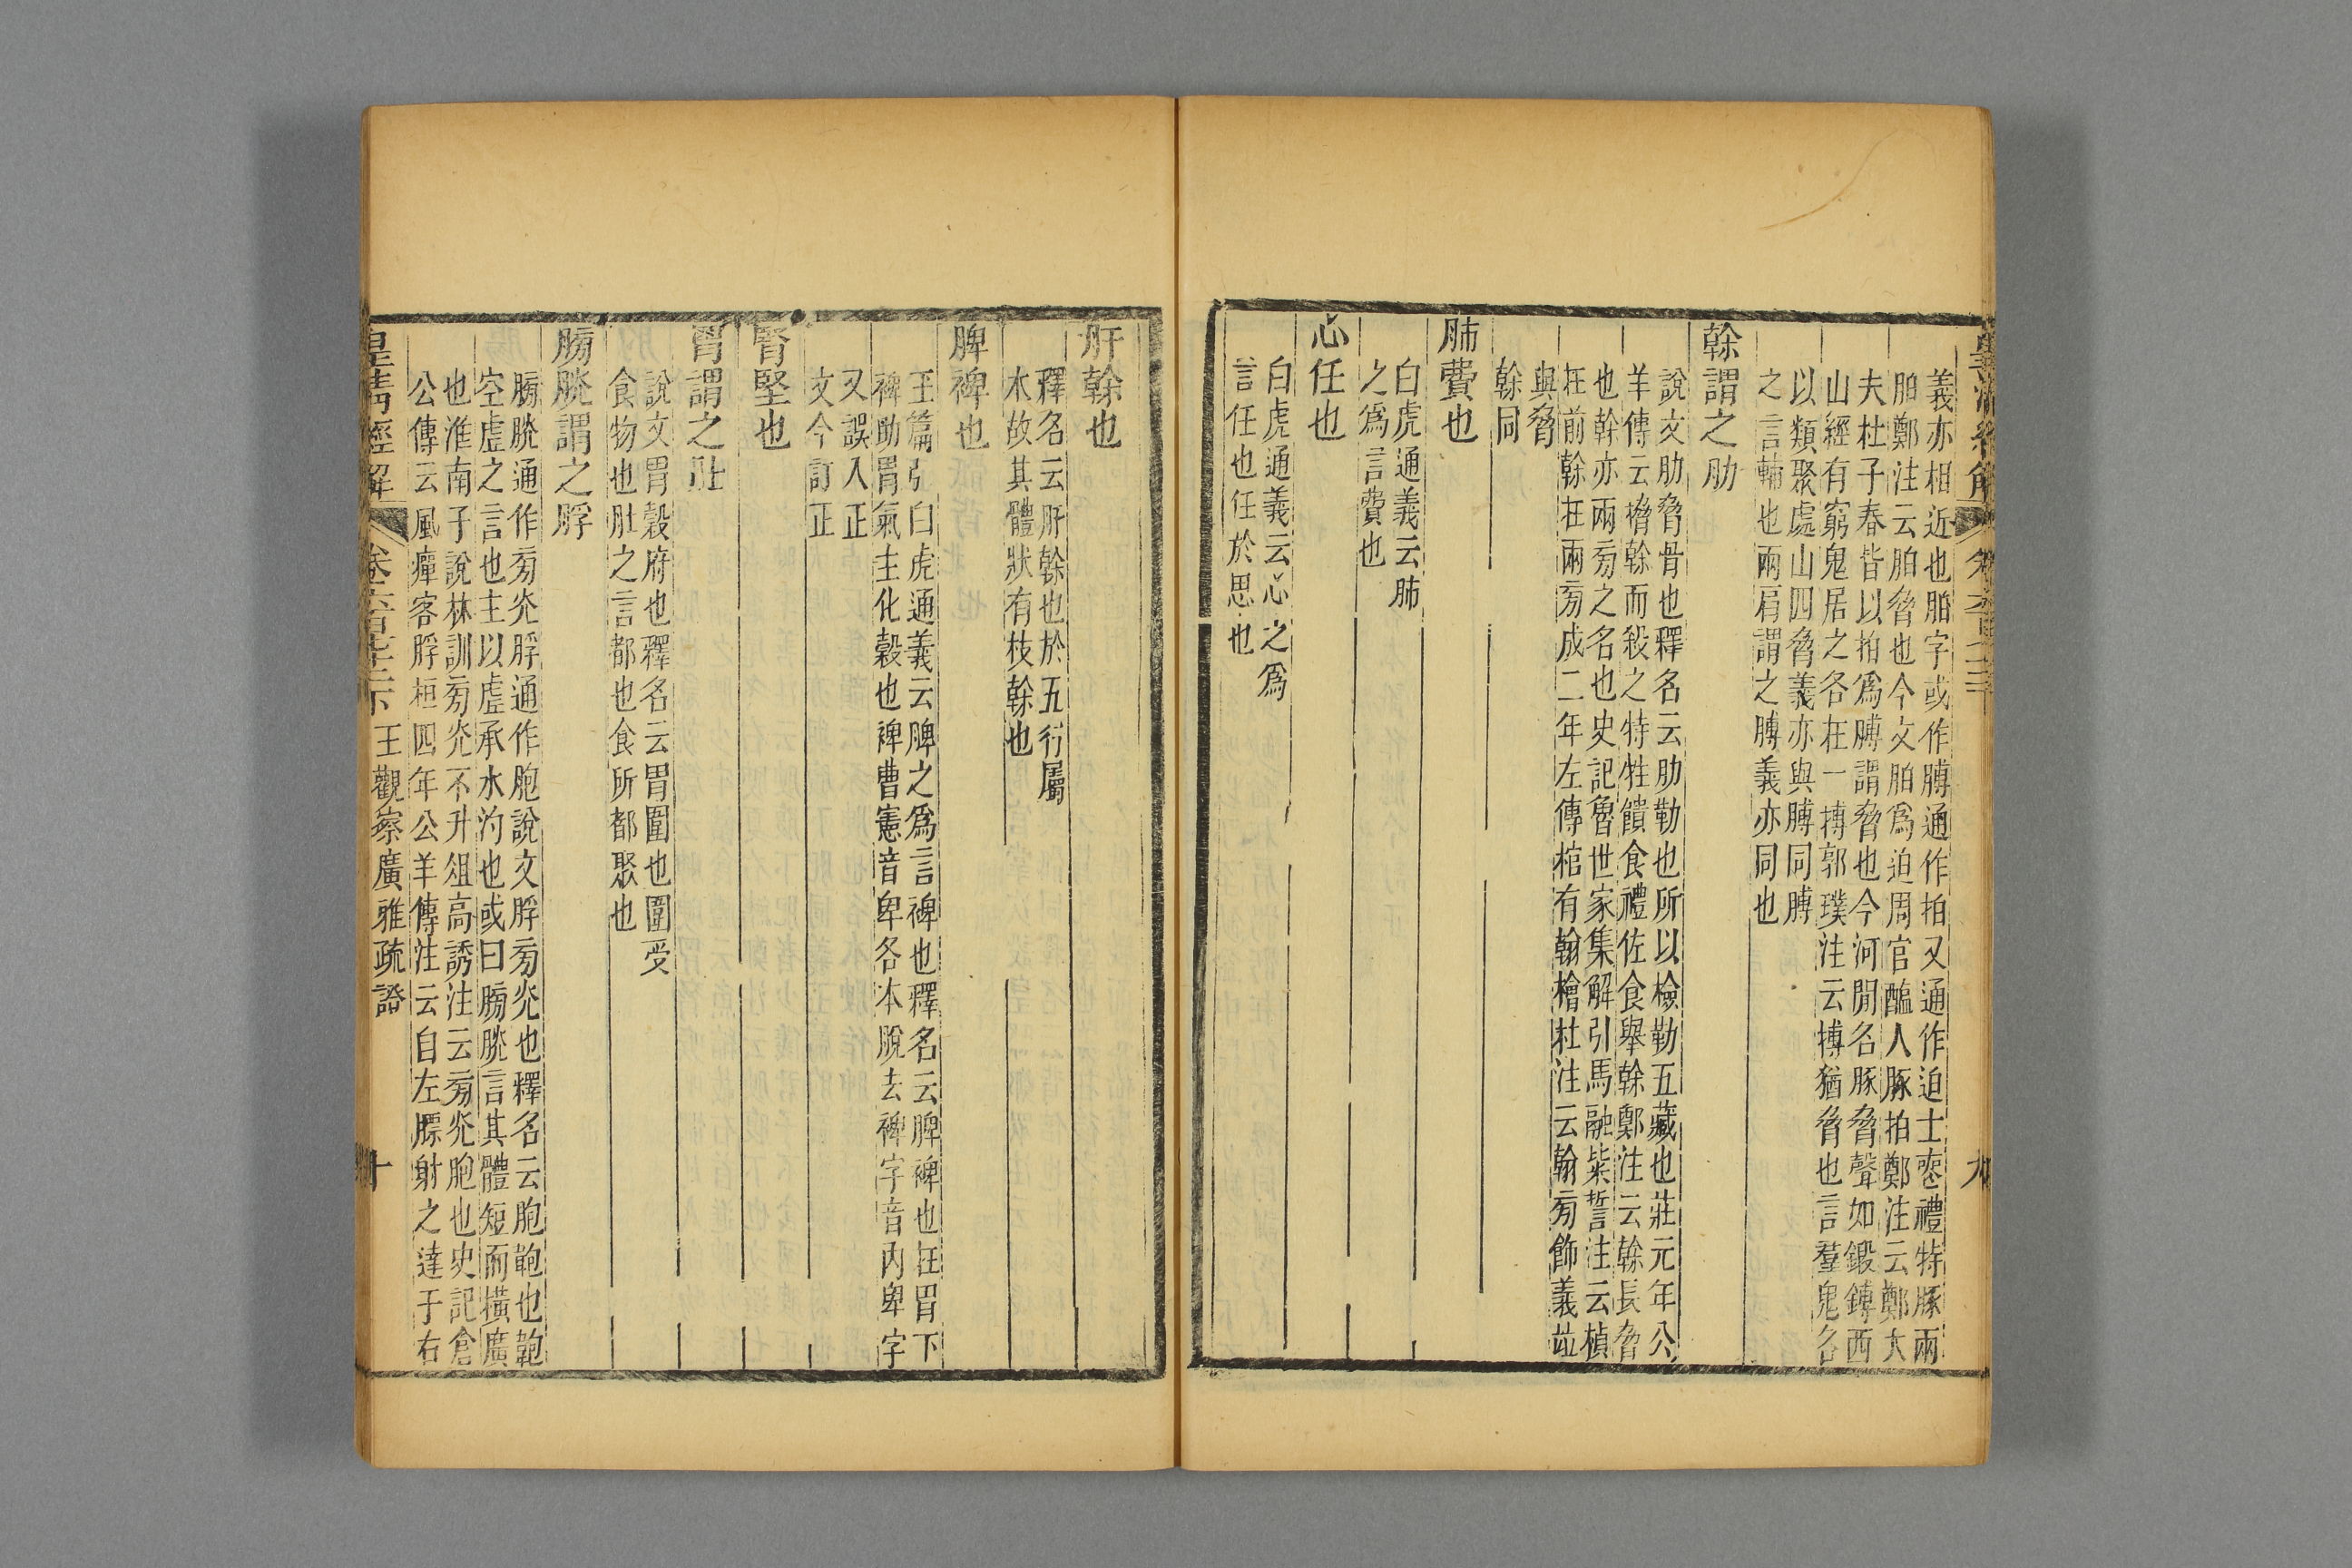 義亦相近也胉字或作膊通作拍又通作迫士喪禮特豚兩
胉鄭注云胉脅也今文胉爲迫周官醢人豚拍鄭注云鄭大
夫杜子春皆以拍爲膊謂脅也今河閒名豚脅聲如鍛鎛西
山經有窮鬼居之各在一搏郭璞注云搏猶脅也言羣鬼各
以類聚處山四脅義亦與膊同膊
之言輔也兩肩謂之膊義亦同也
榦謂之肋
說文肋脅骨也釋名云肋勒也所以檢勒五藏也莊元年公
羊傳云搚榦而殺之特牲饋食禮佐食舉榦鄭注云榦長脅
也榦亦兩㫄之名也史記魯世家集解引馬融粊誓注云楨
在前榦在兩㫄成二年左傳棺有翰檜杜注云翰㫄飾義竝
與脅
榦同
肺費也
白虎通義云肺
之爲言費也
心任也
白虎通義云心之爲
言任也任於思也
肝榦也
釋名云肝榦也於五行屬
木故其體狀有枝榦也
脾裨也
玉篇引白虎通義云脾之爲言裨也釋名云脾裨也在胃下
裨助胃氣主化穀也裨曹憲音卑各本脫去裨字音內卑字
又誤入正
文今訂正
腎堅也
胃謂之肚
說文胃穀府也釋名云胃圍也圍受
食物也肚之言都也食所都聚也
膀胱謂之脬
膀胱通作㫄光脬通作胞說文脬㫄光也釋名云胞鞄也鞄
空虛之言也主以虛承水汋也或曰膀胱言其體短而橫廣
也淮南子說林訓㫄光不升俎高誘注云㫄光胞也史記倉
公傳云風癉客脬桓四年公羊傳注云自左膘射之達于右
皇清經解 卷六百七十三下 王觀察廣雅疏證 十